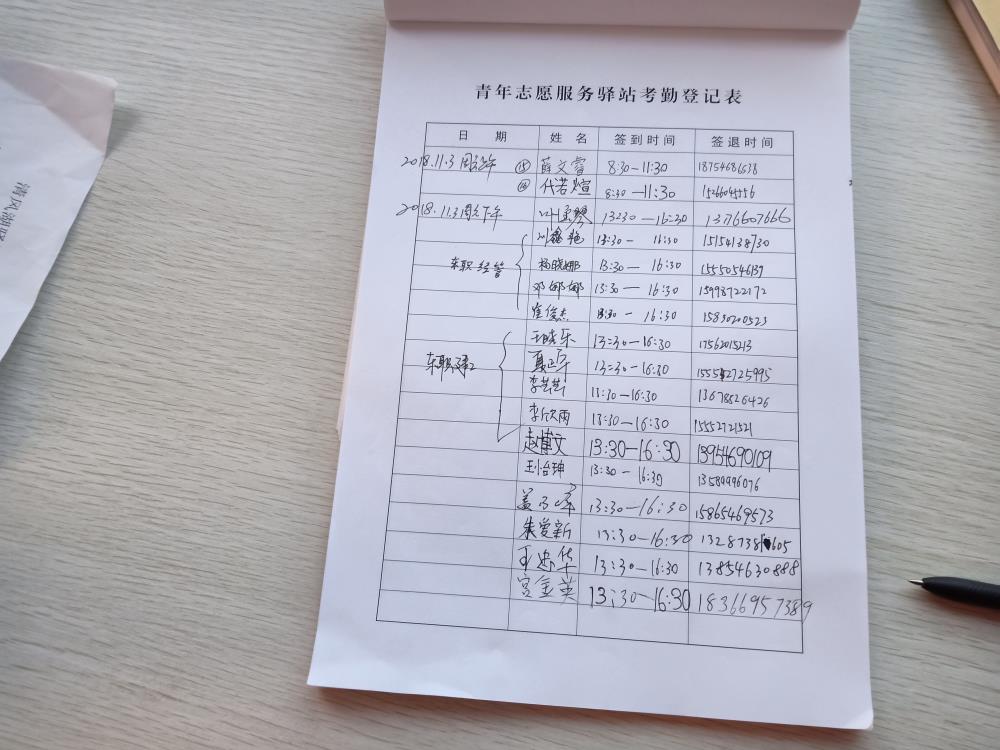 青年志愿服务驿站考勤登记表
日 期 姓 名 签到时间 签退时间
2018.11.3 周六上午 ⑮ 薛文睿 8:30-11:30 18754686638
⑯ 代若煊 8:30-11:30 15266045556
2018.11.3周六下午 13230-16:30 1376607666
13:30- 16:30 15154138730
东职经管 杨晓娜 13:30- 16:30 15550546139
邓娜娜 13:30-16:30 15998722172
崔俊杰 13:30 - 16:30 15830200523
王晓乐 13:30-16:30 17562015213
夏正厚 13:30-16:30
李芸芸 13:30-16:30 13678826426
李欣雨 13:30-16:30 15552721521
赵博文 13:30-16:30 13954690109
王怡珅 13:30-16:30 13589996076
13:30-16:30 15865469573
朱爱新 13:30-16:30
王忠华 13:30-16:30 13854630888
宫金英 13:30-16:30 18366957389
清风湖